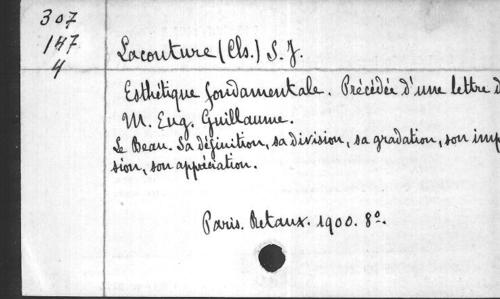 307
147
4
Lacouture (Cls.) S. J.
Esthétique fondamentale. Précédée d'une lettre d
M. Eug. Guillaume.
Le Beau. Sa définition, sa division, sa gradation, son imp
sion, son appréciation.
Paris. Retaux. 1900. 8º.